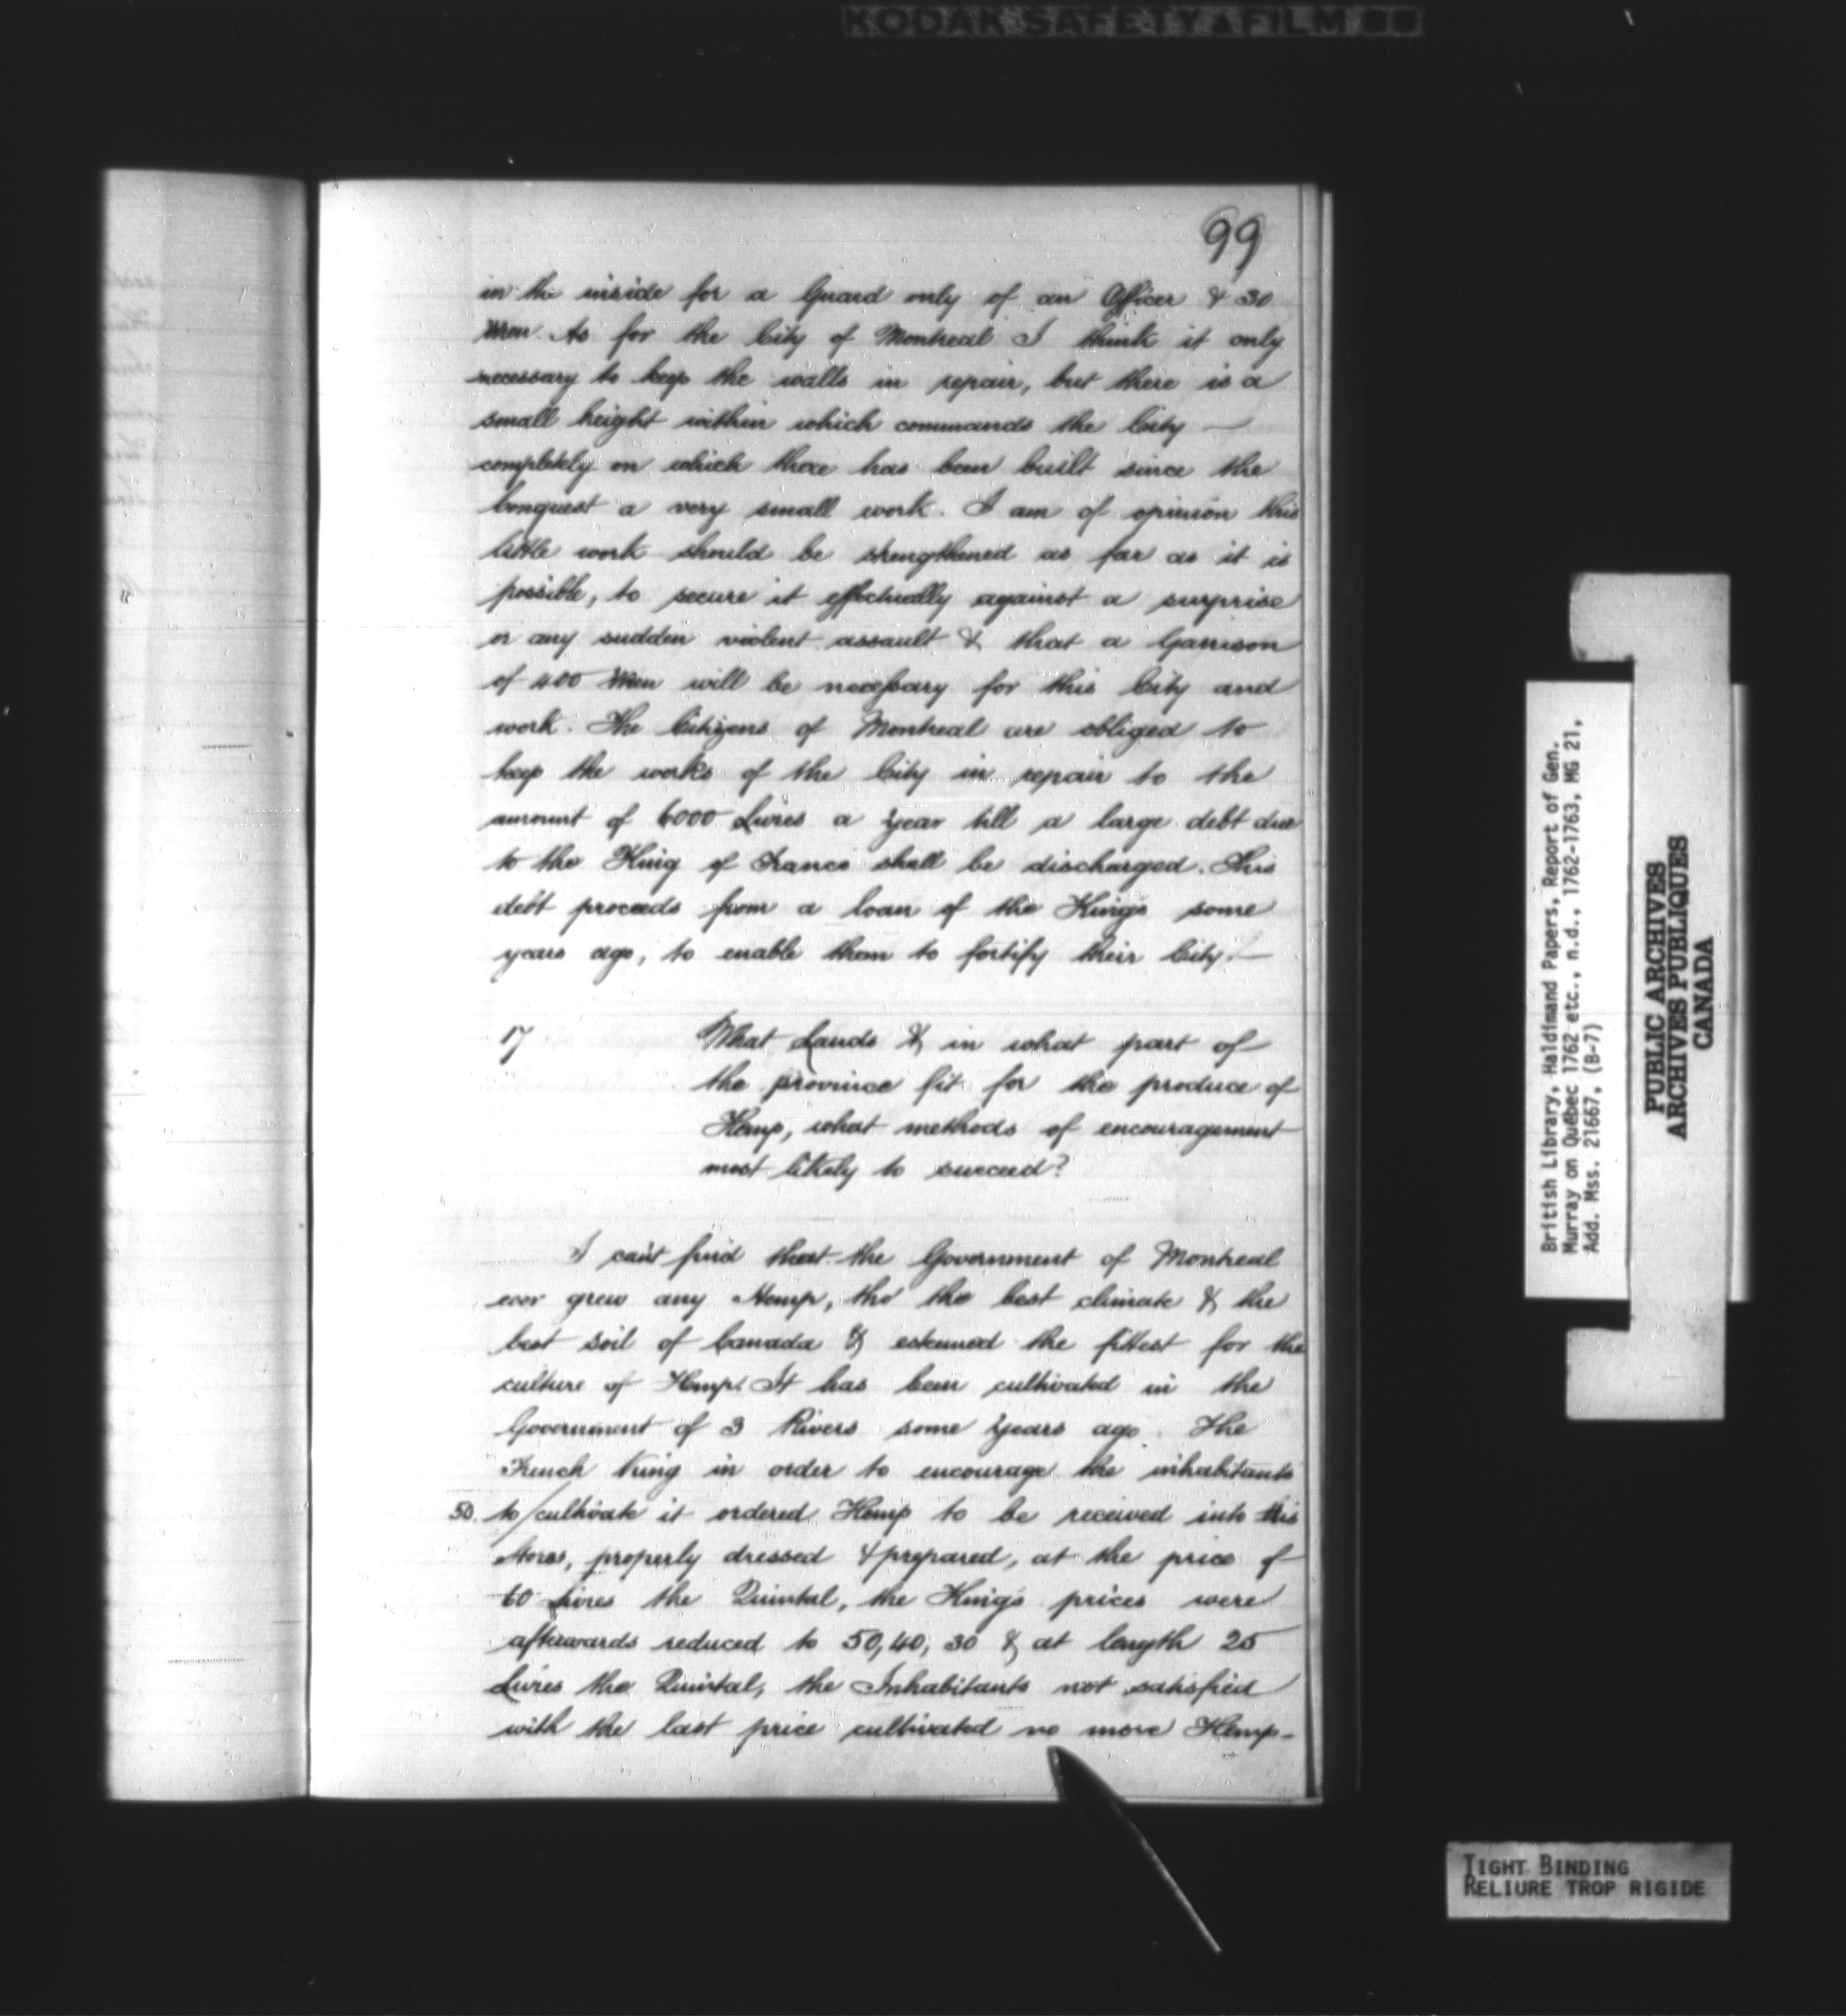 KODAK SAFETY FILM
99
in the inside for a Guard only of an Officer & 30
Men. As for the City of Montreal I think it only
necessary to keep the walls in repair, but there is a
small height within which commands the City —
completely on which there has been built since the
Conquest a very small work. I am of opinion this
little work should be strengthened as far as it is
possible, to secure it effectually against a surprise
or any sudden violent assault & that a Garrison
of 400 Men will be necessary for this City and
work. The Citizens of Montreal are obliged to
keep the works of the City in repair to the
amount of 6000 Livres a year till a large debt due
to the King of France shall be discharged. This
debt proceeds from a loan of the King's some
years ago, to enable them to fortify their City. —
17 What Lands & in what part of
the province fit for the produce of
Hemp, what methods of encouragement
most likely to succeed?
I can't find that the Government of Montreal
ever grew any Hemp, tho' the best climate & the
best soil of Canada & esteemed the fittest for the
culture of Hemp. It has been cultivated in the
Government of 3 Rivers some years ago. The
French King in order to encourage the inhabitants
50. to/cultivate it ordered Hemp to be received into his
Stores, properly dressed & prepared, at the price of
60 Livres the Quintal, the King's prices were
afterwards reduced to 50, 40, 30 & at length 25
Livres the Quintal, the Inhabitants not satisfied
with the last price cultivated no more Hemp.
British Library, Haldimand Papers, Report of Gen.
Murray on Québec 1762 etc., n.d., 1762-1763, MG 21,
Add. Mss. 21667, (B-7)
PUBLIC ARCHIVES
ARCHIVES PUBLIQUES
CANADA
TIGHT BINDING
RELIURE TROP RIGIDE